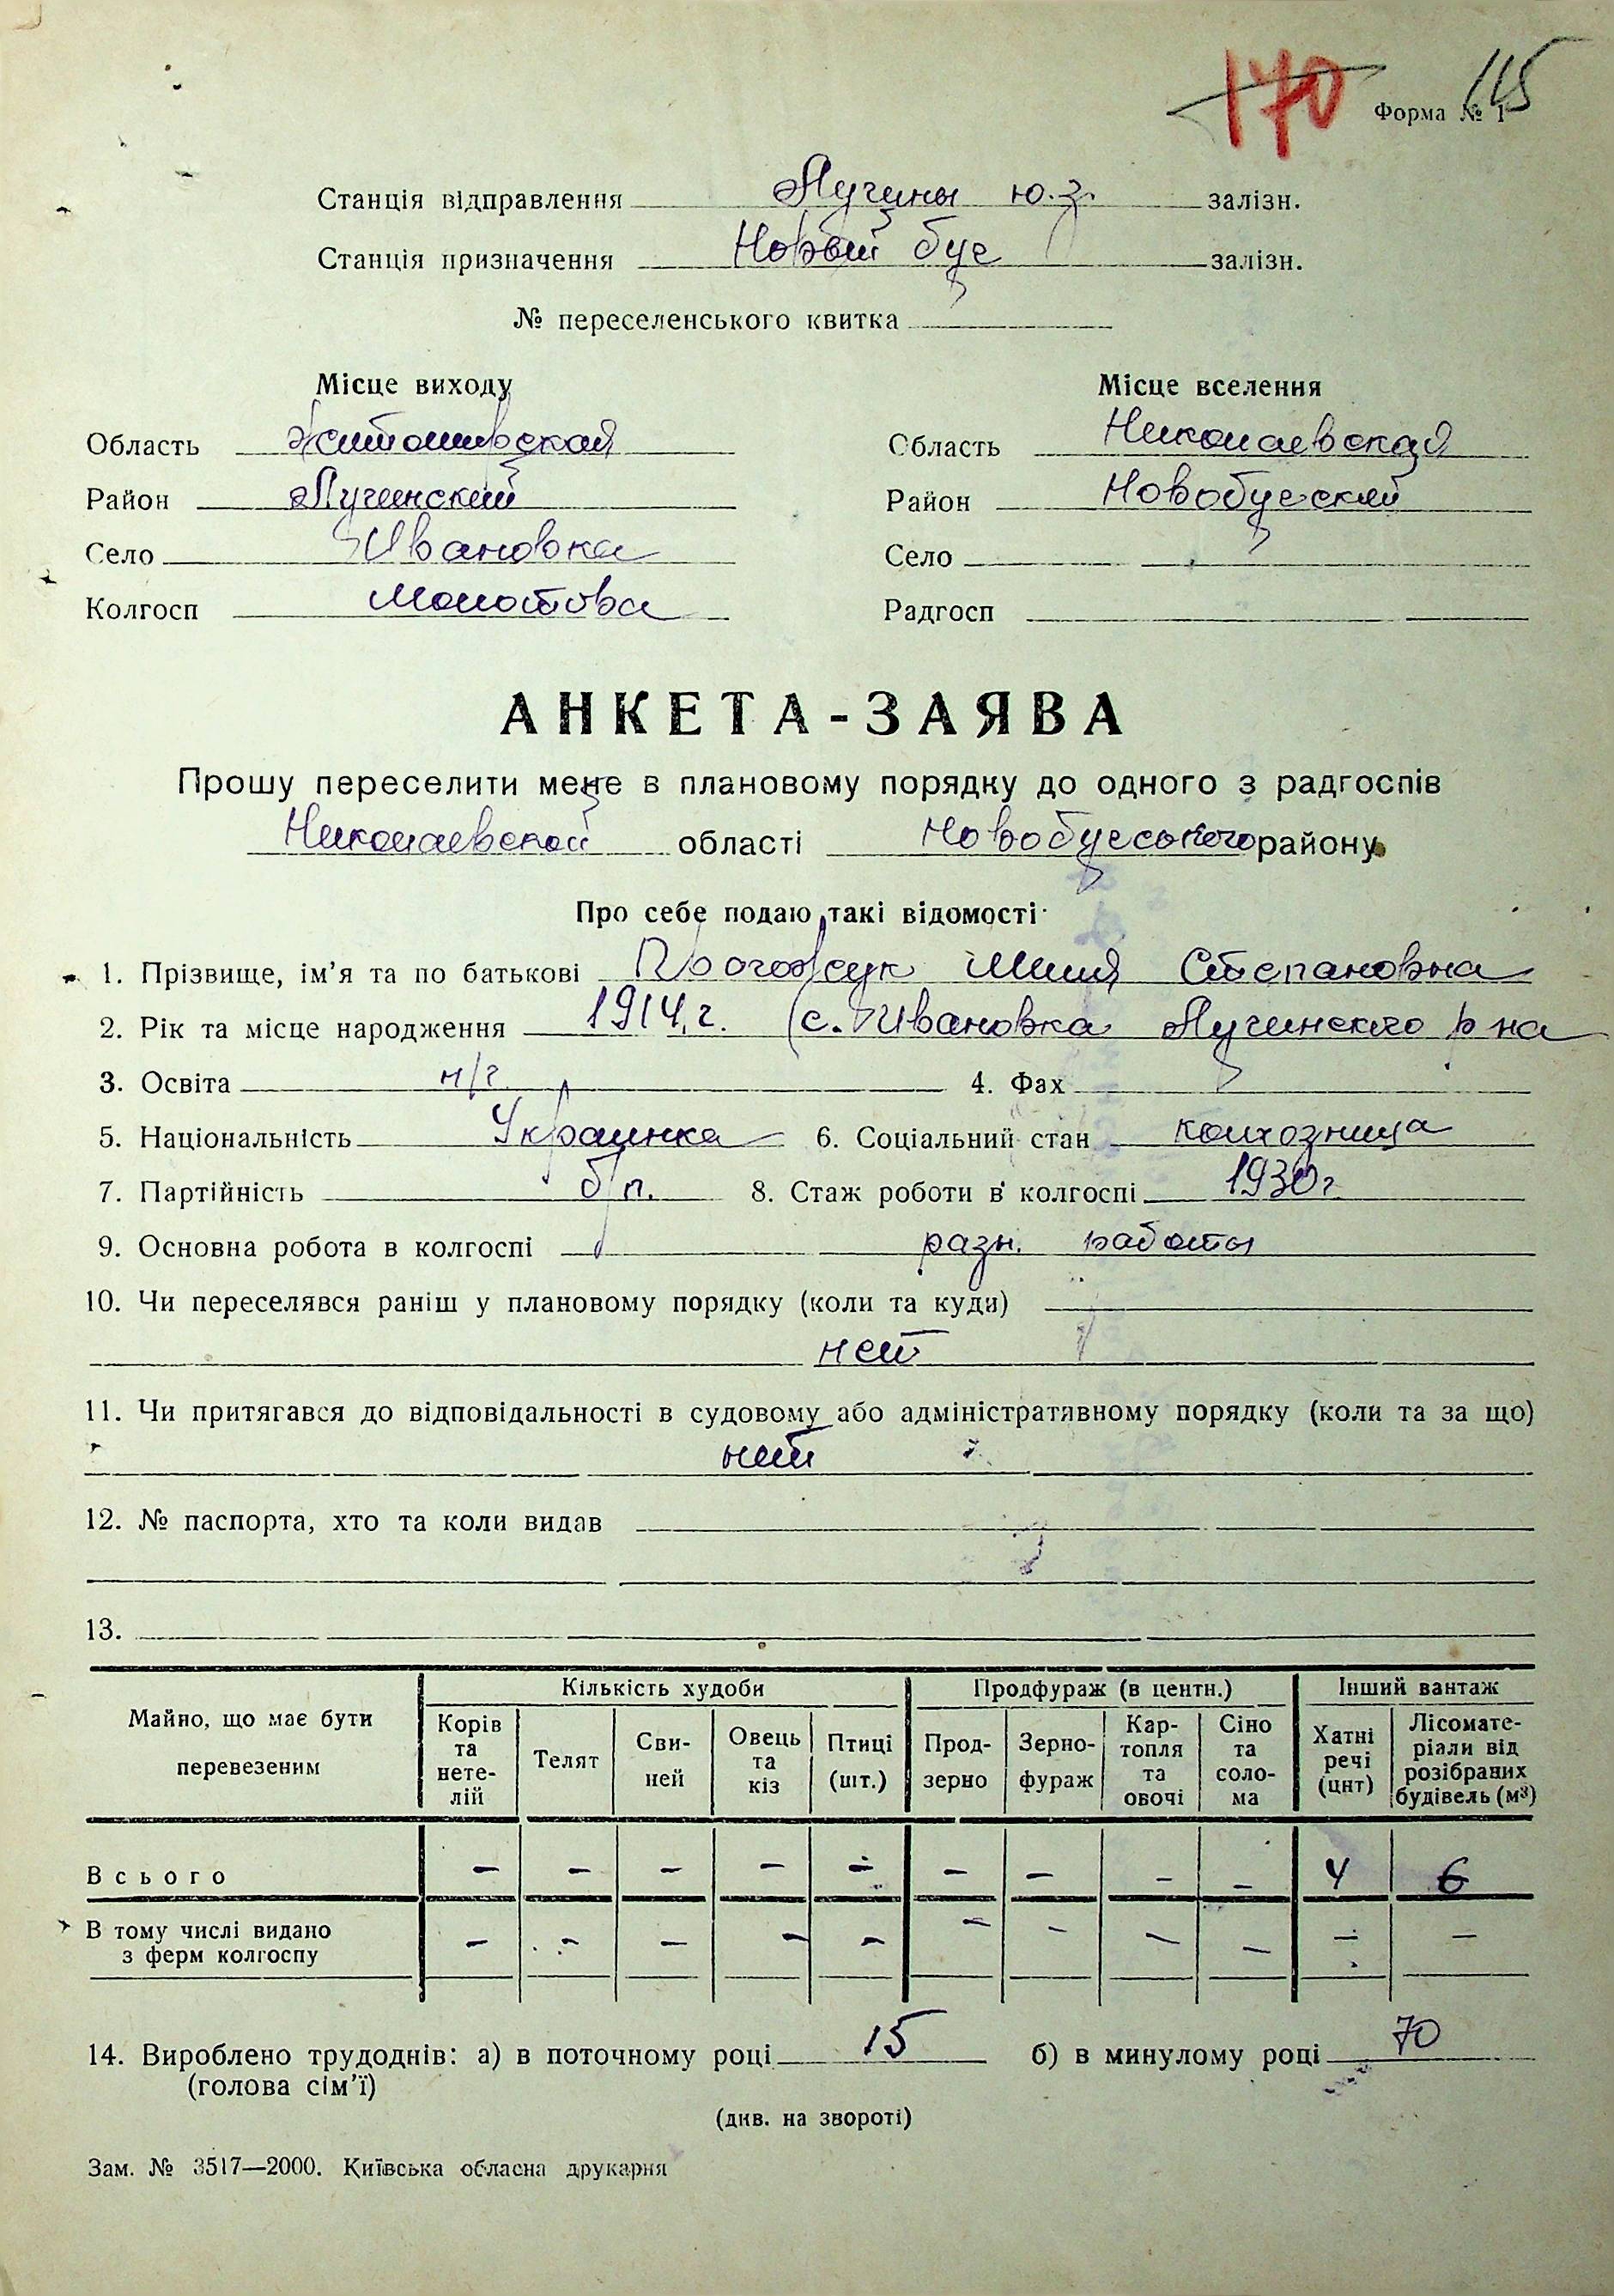 170 115
Форма № 1
Станція відправлення Лучины ю.з. залізн.
Станція призначення Новый буг залізн.
№ переселенського квитка
Місце виходу Місце вселення
Область Житомирская Область Николаевская
Район Лучинский Район Новобугский
Село Ивановка Село
Колгосп Молотова Радгосп
АНКЕТА-ЗАЯВА
Прошу переселити мене в плановому порядку до одного з радгоспів
Николаевской області Новобугського району
Про себе подаю такі відомості
1. Прізвище, ім'я та по батькові Степановна
2. Рік та місце народження 1914.г. (с. Ивановка Лучинского р на
3. Освіта н/г 4. Фах
5. Національність Украинка 6. Соціальний стан колхозница
7. Партійність б/п. 8. Стаж роботи в колгоспі 1930г
9. Основна робота в колгоспі разн. работы
10. Чи переселявся раніш у плановому порядку (коли та куди)
нет
11. Чи притягався до відповідальності в судовому або адміністративному порядку (коли та за що)
нет
12. № паспорта, хто та коли видав
13.
Майно, що має бути перевезеним Кількість худоби Продфураж (в центн.) Інший вантаж
Корів та нете-лій Телят Сви-ней Овець та кіз Птиці (шт.) Прод-зерно Зерно-фураж Кар-топля та овочі Сіно та соло-ма Хатні речі (цнт) Лісомате-ріали від розібраних будівель (м³)
Всього — — — — — — — — — 4 6
В тому числі видано з ферм колгоспу — — — — — — — — — — —
14. Вироблено трудоднів: а) в поточному році 15 б) в минулому році 70
(голова сім'ї)
(див. на звороті)
Зам. № 3517—2000. Київська обласна друкарня